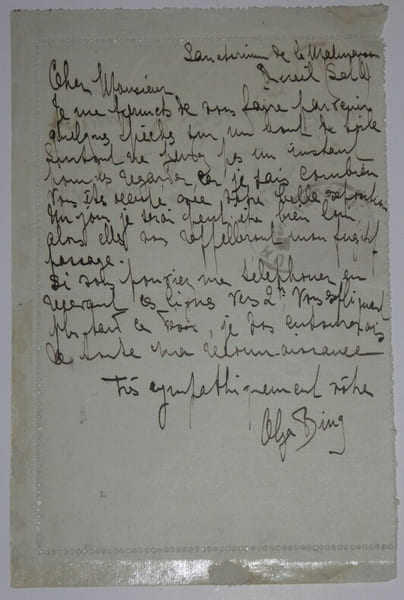 Sanatorium de la Malmaison
Rueil S et O
Cher Monsieur
Je me permets de vous faire parvenir
quelques pêches sur un bout de toile
Surtout ne perdez pas un instant
pour les regarder, car je sais combien
vous êtes occupé avec votre belle exposition
Un jour je serai peut être bien loin
alors elles vous rappelleront mon fugitif
passage.
Si vous pouviez me téléphoner en
recevant ces lignes vers 2h
plus tard ce soir, je vous
de toute ma reconnaissance
Très sympathiquement vôtre
Olga Bing